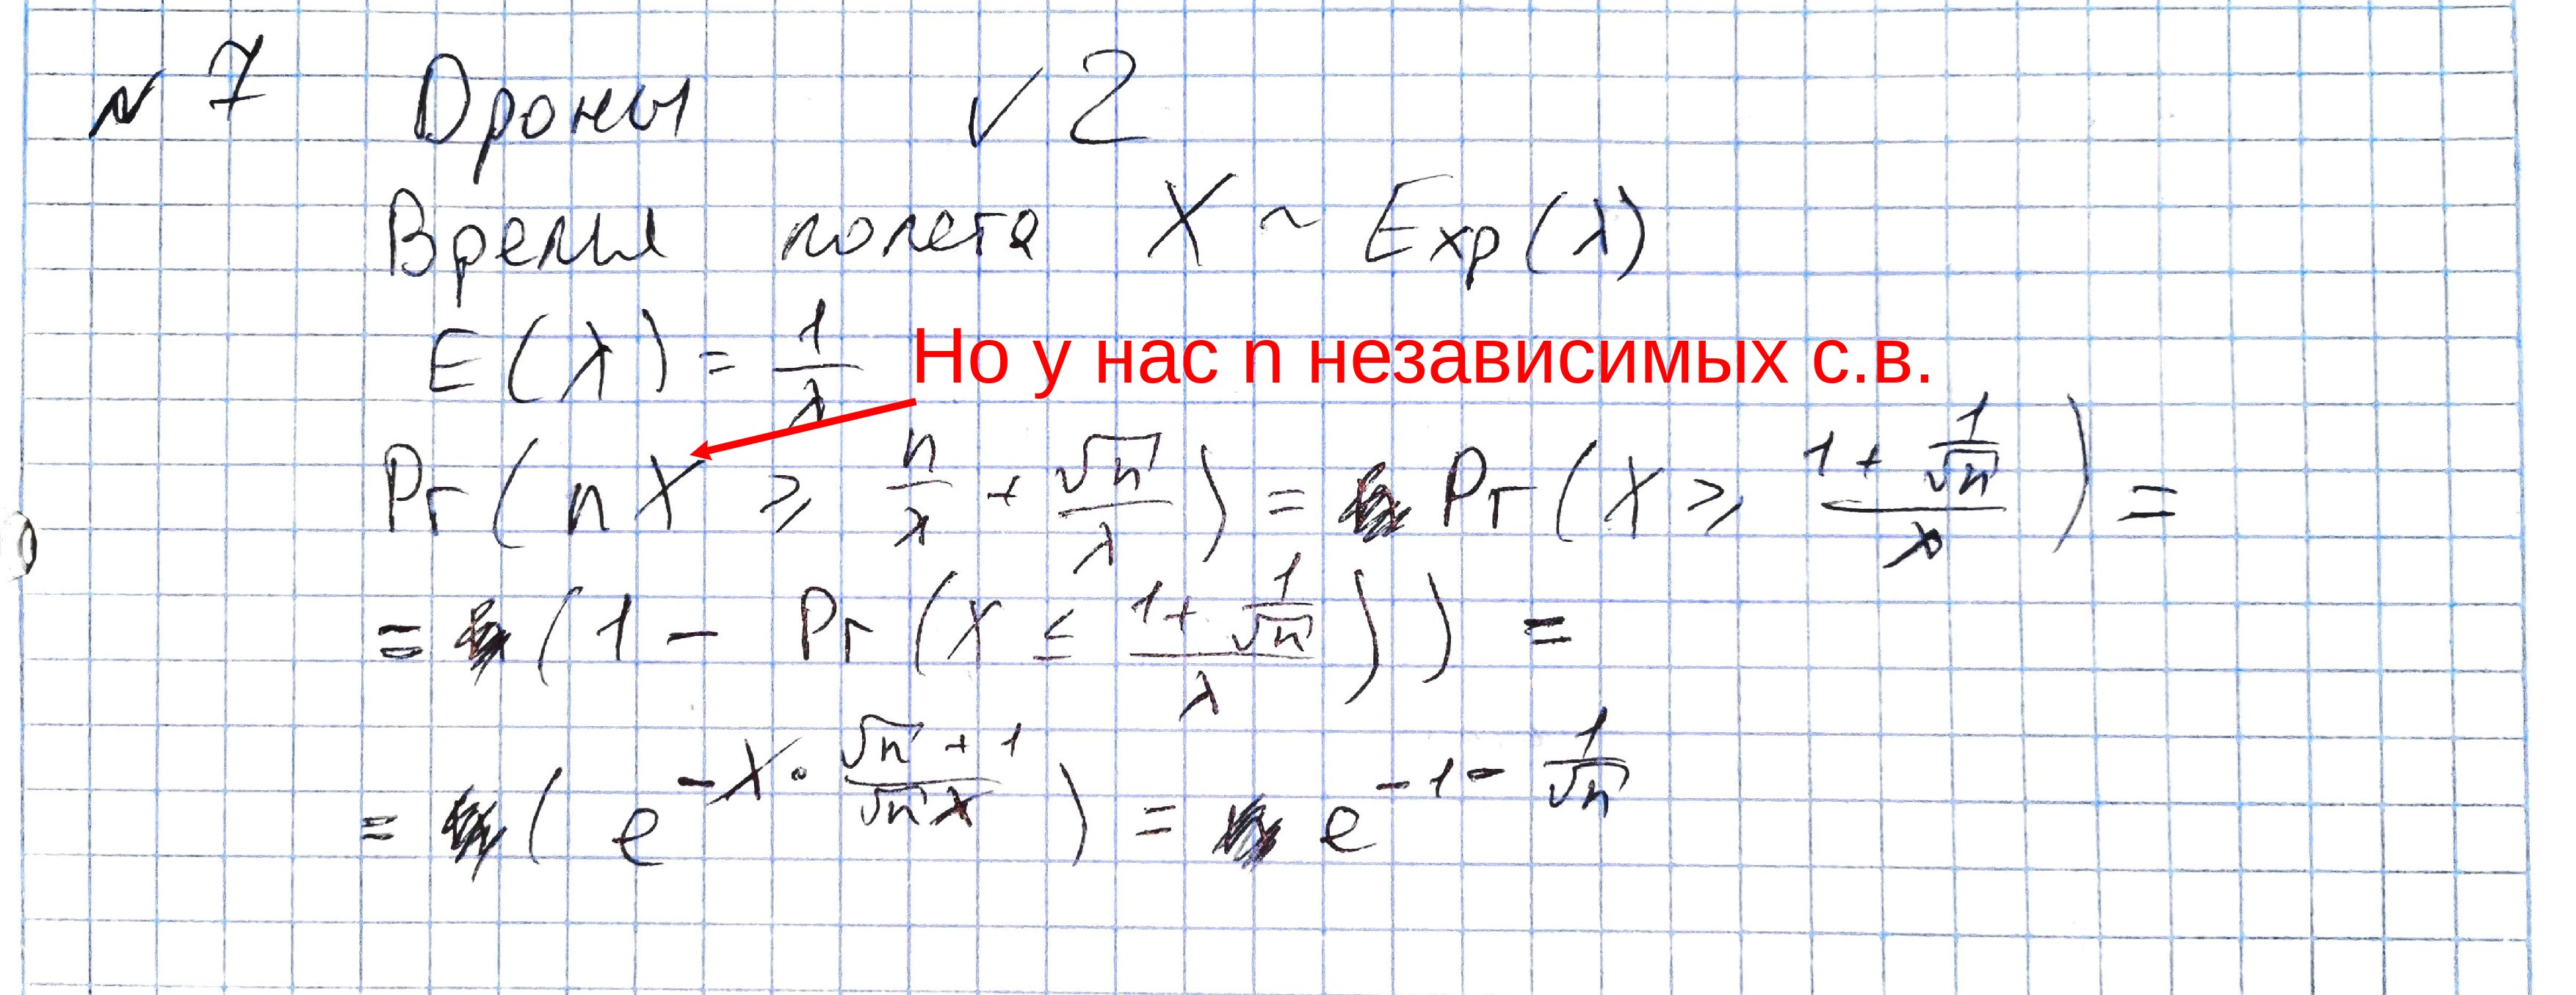 № 7 Дроны √2
Время полета X ~ Exp(λ)
E(λ) = 1/λ
Но у нас n независимых с.в.
Pr(nX ≥ n/λ + √n/λ) = Pr(X ≥ (1 + 1/√n)/λ) =
= (1 - Pr(X ≤ (1 + 1/√n)/λ)) =
= (e^(-λ · (√n + 1)/(√n λ))) = e^(-1 - 1/√n)